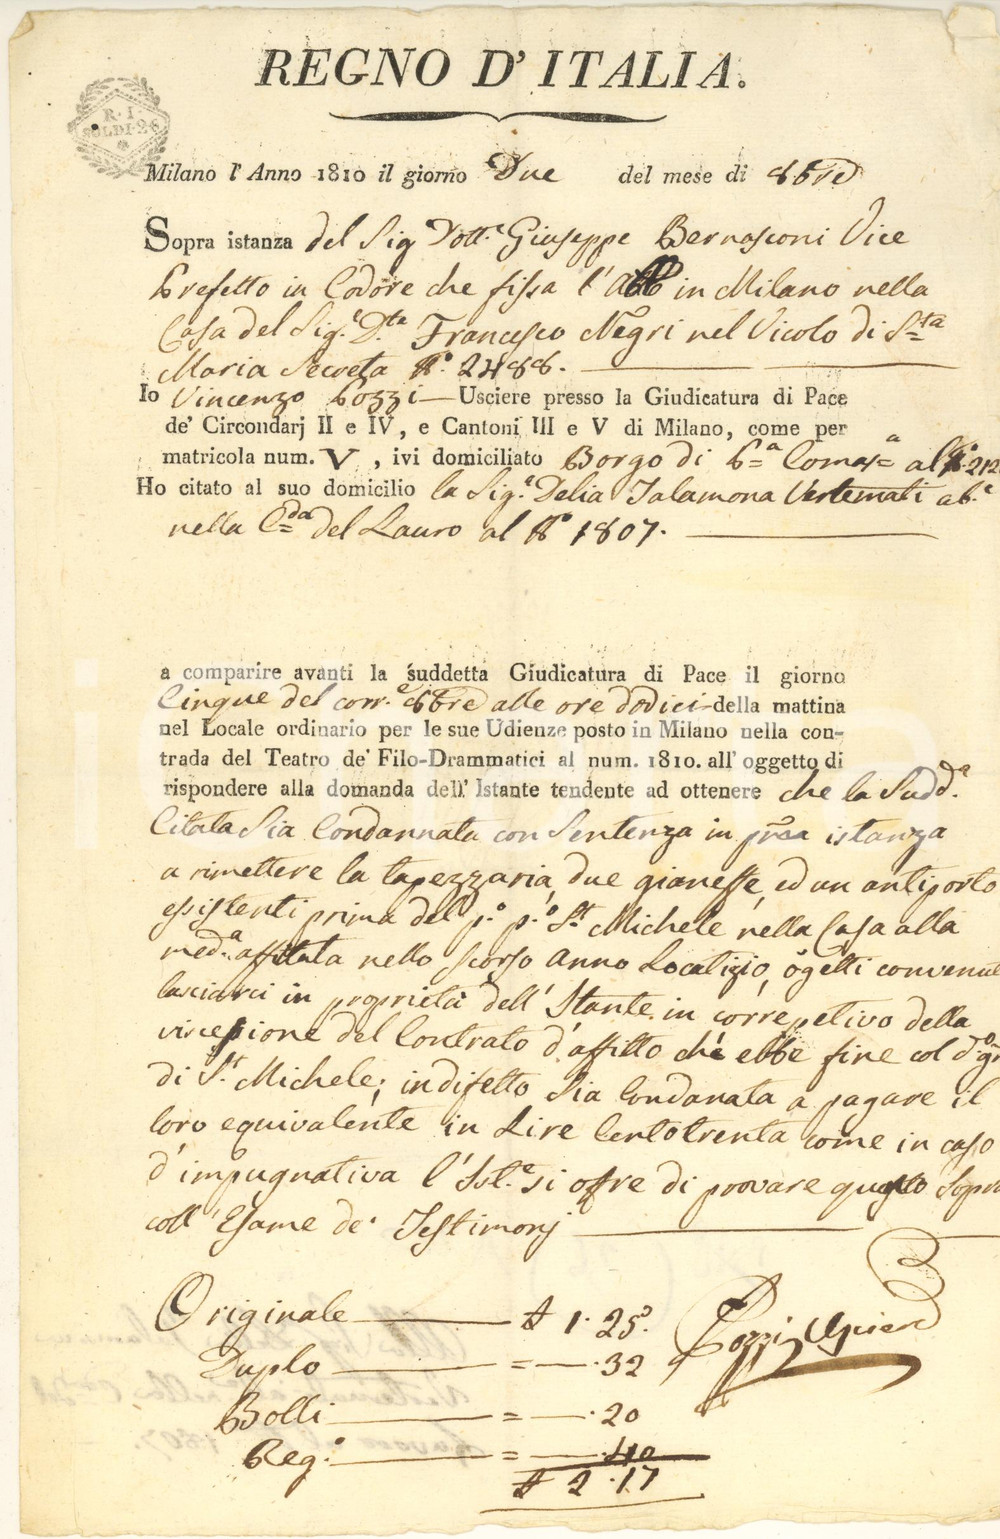 REGNO D' ITALIA.
R. I.
SOLDI. 26
Milano l'Anno 1810 il giorno Due del mese di 8bre
Sopra istanza del Sig.r Dott.e Giuseppe Bernasconi Vice
Prefetto in Codóre che fissa l'Abb in Milano nella
Casa del Sig.e D.ta Francesco Negri nel Vicolo di S.ta
Maria Secreta N.o 2488.
Io Vincenzo Pozzi Usciere presso la Giudicatura di Pace
de' Circondarj II e IV, e Cantoni III e V di Milano, come per
matricola num. V , ivi domiciliato Borgo di P.a Comas.a al N.o 212
Ho citato al suo domicilio la Sig.e Delia Talamona Vertemati ab.e
nella C.da del Lauro al N.o 1807.
a comparire avanti la suddetta Giudicatura di Pace il giorno
Cinque del corr.e 8bre alle ore dodici della mattina
nel Locale ordinario per le sue Udienze posto in Milano nella con-
trada del Teatro de' Filo-Drammatici al num. 1810. all' oggetto di
rispondere alla domanda dell' Istante tendente ad ottenere che la Sudd.a
Citata Sia Condannata con Sentenza in pr͠ea istanza
a rimettere la tapezzaria, due gianesse, ed un antiporto
essistenti prima del p.o p.o S.t Michele nella Casa alla
med.a affittata nello scorso Anno Locatizio, ogetti convenut
lasciarci in proprietà dell' Istante in corrепetivo della
del Contrato d'affitto ché ebbe fine col d.o
di S.t Michele; indifetto Sia Condanata a pagare il
loro equivalente in Lire Centotrenta come in caso
d'impugnativa l'Ist.e si offre di provare quanto Sopra
coll'Esame de' Testimonj
Originale 1. 25.
Duplo = .32
Bolli = .20
Reg.o = .40
2.17
Pozzi Usciere